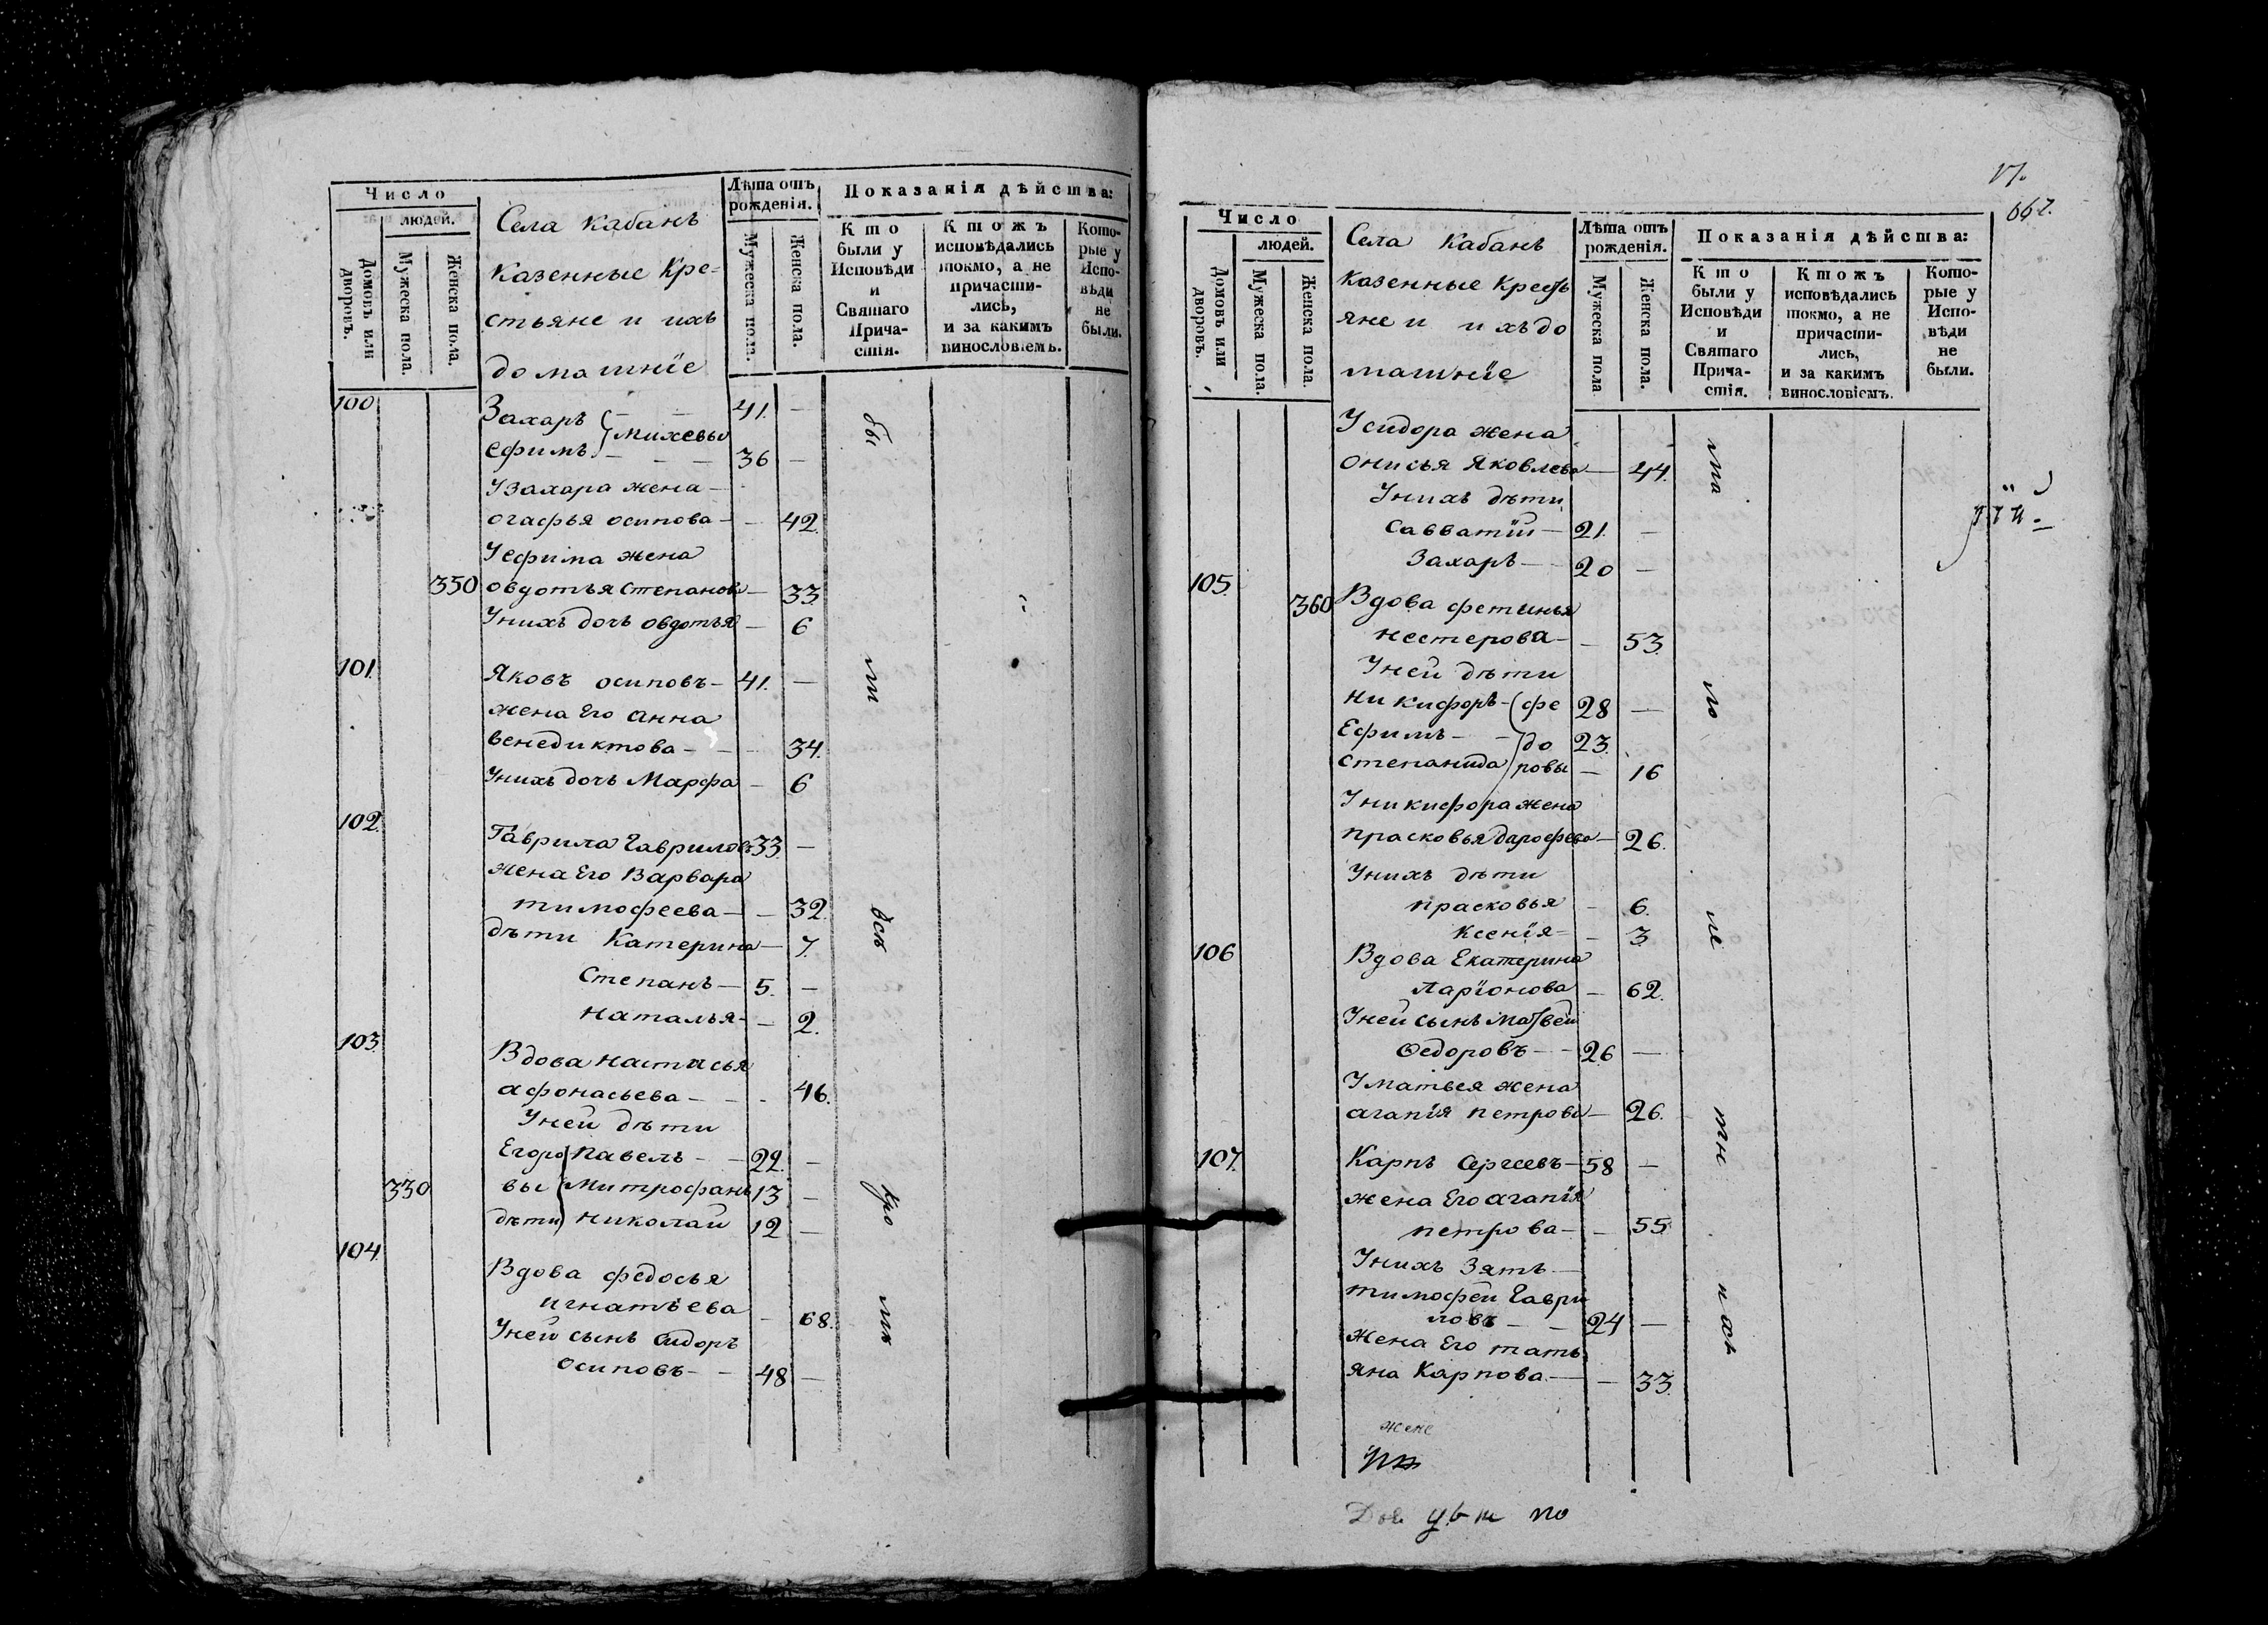 Число
людей.
Домовъ или дворовъ.
Мужеска пола.
Женска пола.
Села Кабанъ
казенные Кре=
стьяне и ихъ
домашнїе
Лѣта отъ рожденія.
Мужеска пола.
Женска пола.
Показанія дѣйства:
Кто были у Исповѣди и Святаго Причастія.
Ктожъ исповѣдались токмо, а не причастились, и за какимъ винословіемъ.
Которые у Исповѣди не были.
100 Захаръ - - 41. -
Михевы
Ефимъ - - - 36 -
У Захара жена -
огафья осипова - - 42.
У Ефима жена
350 овдотья Степанова - 33.
У нихъ дочь овдотья - 6
101. Яковъ осиповъ - 41. -
жена Его Анна
венедиктова - - - 34.
У нихъ дочь Марфа - 6
102. Гаврила Гавриловъ 33. -
жена Его Варвара
тимофеева - - 32.
дѣти Катерина - 7.
Степанъ - 5. -
Наталья - - 2.
103. Вдова Настасья
афонасьева - - - 46.
У ней дѣти
Егоро Павелъ - - 22. -
330 вы Митрофанъ 13 -
дѣти Николай 12 -
104. Вдова федосья
игнатьева - 68.
У ней сынъ Сидоръ
осиповъ - - 48 -
бы
ли
всѣ
кро
мѣ
17.
667.
Число
людей.
Домовъ или дворовъ.
Мужеска пола.
Женска пола.
Села Кабанъ
казенные Кресть
яне и ихъ до
машнїе
Лѣта отъ рожденія.
Мужеска пола
Женска пола.
Показанія дѣйства:
Кто были у Исповѣди и Святаго Причастія.
Ктожъ исповѣдались токмо, а не причастились, и за какимъ винословіемъ.
Которые у Исповѣди не были.
У сидора жена
Онисья Яковлева - 44.
У нихъ дѣти
Савватїй - 21. -
Захаръ - 20 -
105. 360 Вдова фетинья
нестерова - - 53.
У ней дѣти
Никифоръ - фе 28 -
Ефимъ - - до 23.
Степанида ровы - 16
У никифора жена
прасковья дарофева - 26.
У нихъ дѣти
прасковья - 6.
Ксенїя - - 3
106 Вдова Екатерина
Ларїонова - 62.
У ней сынъ Матвей
Ѳедоровъ - - 26 -
У матвея жена
агапїя петрова - 26.
107. Карпъ Сергеевъ - 58 -
жена Его агапїя
петрова - - 55
У нихъ Зять -
тимофей Гаври
ловъ - - 24 -
Жена Его тать
яна Карпова - - 33.
ма
ло
лѣ
тн
ихъ
жене